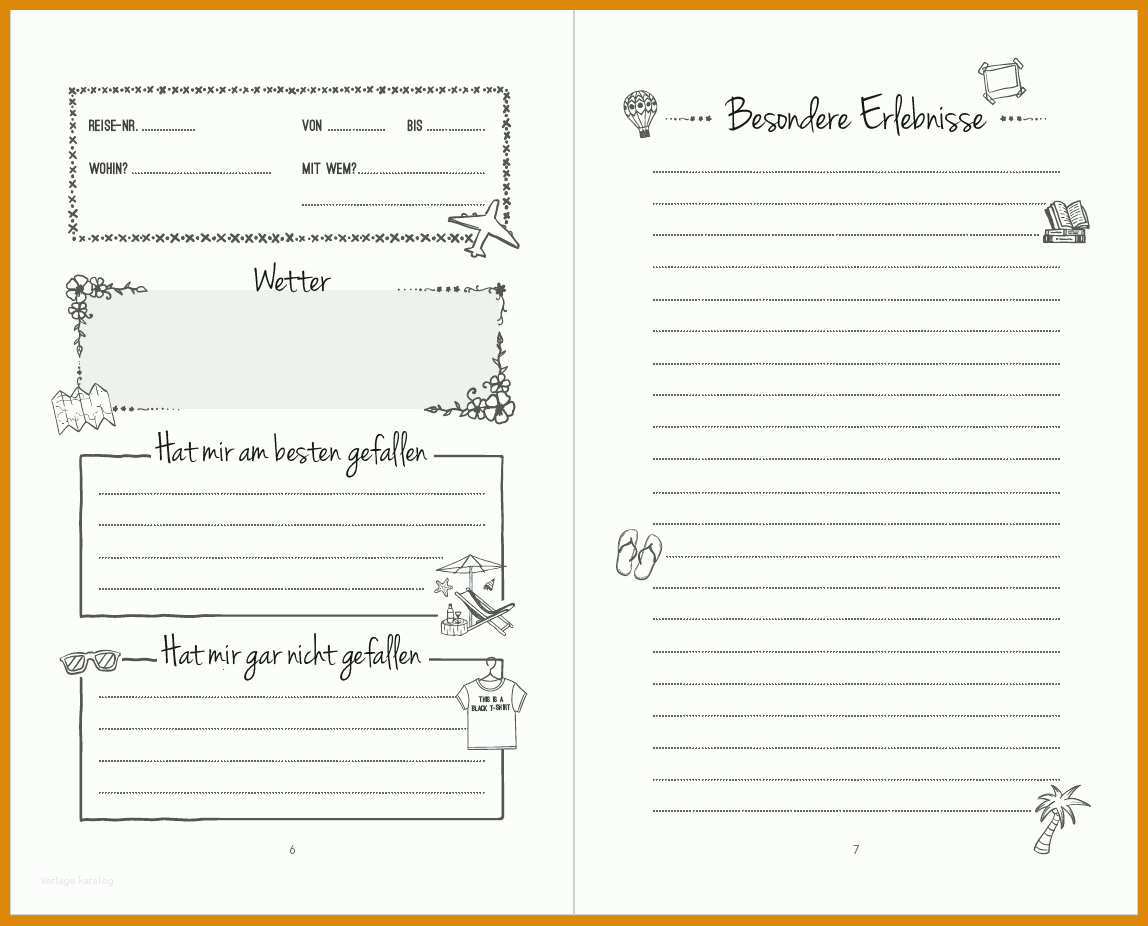 REISE-NR. VON BIS
WOHIN? MIT WEM?
Wetter
Hat mir am besten gefallen
Hat mir gar nicht gefallen
THIS IS A
BLACK T-SHIRT
6
vorlage katalog
Besondere Erlebnisse
7